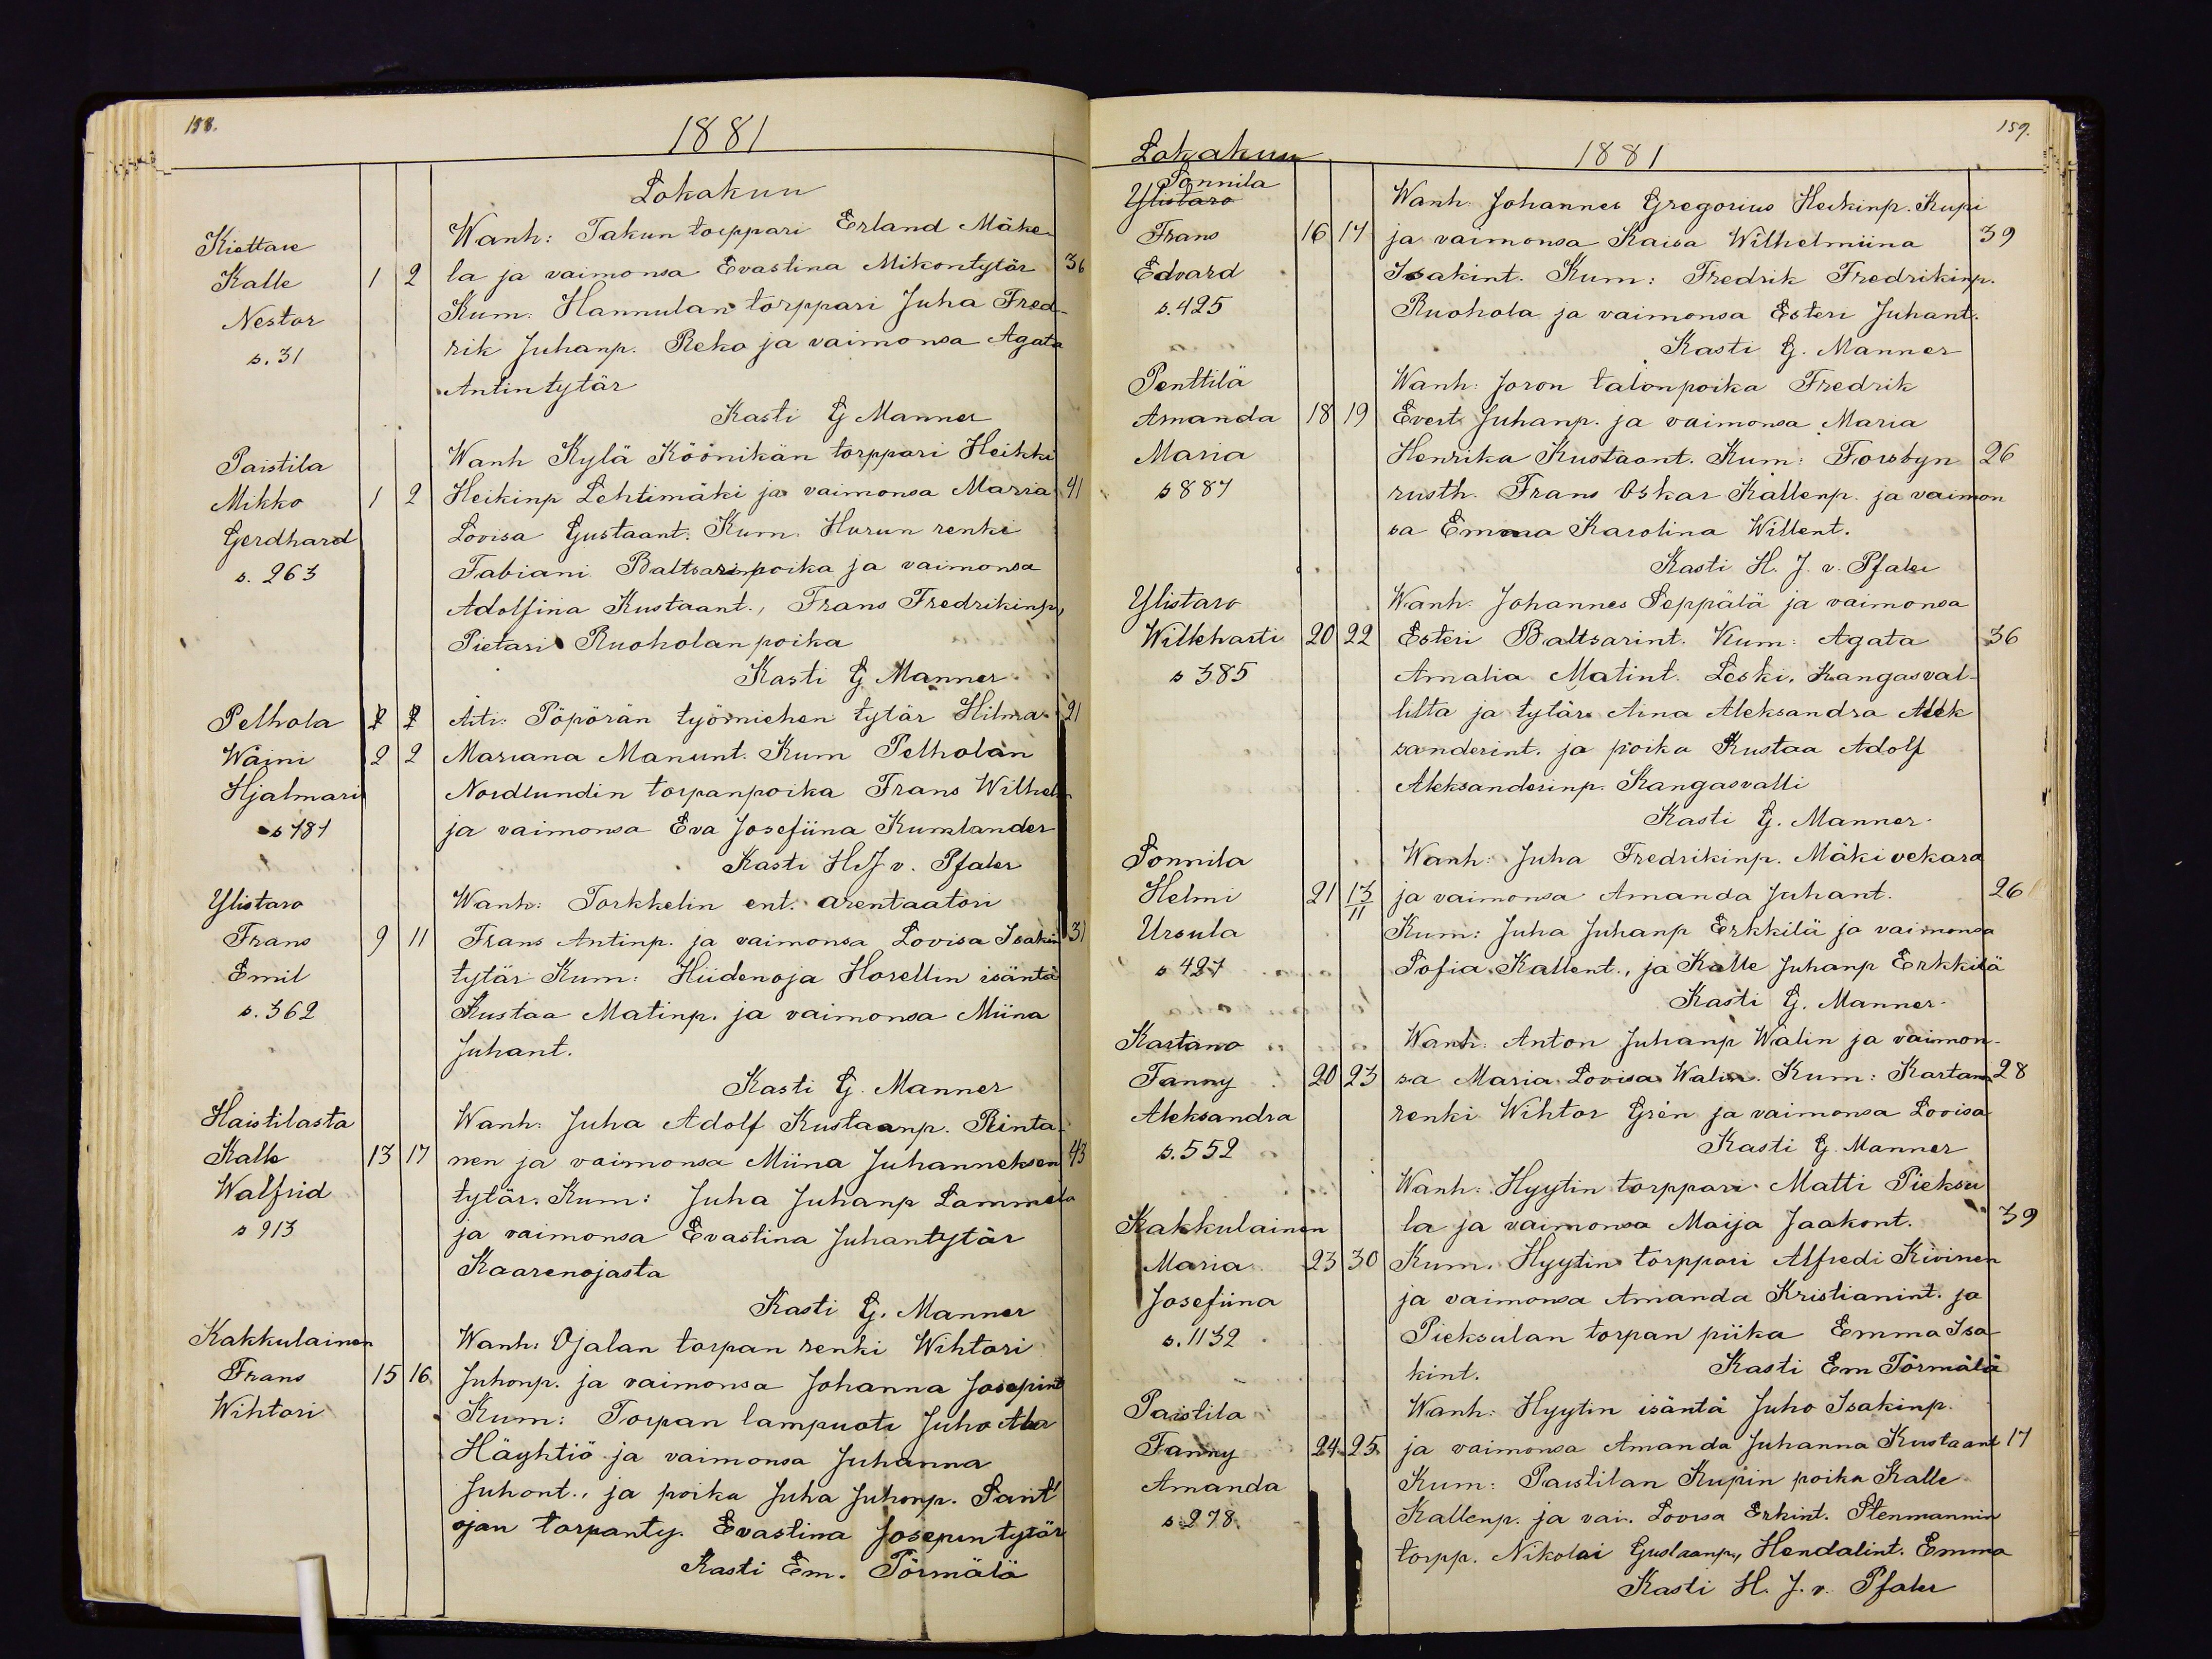 158.
1881
Lokakuu
Kiettare
Kalle
Nestor
s. 31
1 2
Wanh: Takun torppari Erland Mäke-
la ja vaimonsa Evastina Mikontytär 36
Kum. Hannulan torppari Juha Fred-
rik Juhanp. Reko ja vaimonsa Agata
Antintytär
Kasti G Manner
Paistila
Mikko
Gerdhard
s. 263
1 2
Wanh Kylä Köönikän torppari Heikki
Heikinp Lehtimäki ja vaimonsa Maria 41
Lovisa Gustaant. Kum. Hurun renki
Fabiani Baltsarinpoika ja vaimonsa
Adolfina Kustaant., Frans Fredrikinp,
Pietari Ruoholan poika
Kasti G Manner.
Pelhola
Wäini
Hjalmari
s 181
2 2
Äiti: Pöpörän työmiehen tytär Hilma 21
Mariana Manunt. Kum Pelholan
Nordlundin torpanpoika Frans Wilhel
ja vaimonsa Eva Josefiina Kumlander
Kasti H J v. Pfaler
Ylistaro
Frans
Emil
s. 362
9 11
Wanh: Torkkelin ent. arentaatori
Frans Antinp. ja vaimonsa Lovisa Isakin 31
tytär Kum: Hiidenoja Horellin isäntä
Kustaa Matinp. ja vaimonsa Miina
Juhant.
Kasti G. Manner
Haistilasta
Kalle
Walfrid
s 913
13 17
Wanh: Juha Adolf Kustaanp. Rinta-
nen ja vaimonsa Miina Juhanneksen 43
tytär. Kum: Juha Juhanp Lammela
ja vaimonsa Evastina Juhantytär
Kaarenojasta
Kasti G. Manner
Kakkulainen
Frans
Wihtori
15 16
Wanh: Ojalan torpan renki Wihtori
Juhonp. ja vaimonsa Johanna Josepint
Kum: Torpan lampuoti Juho Ala
Häyhtiö ja vaimonsa Juhanna
Juhont., ja poika Juha Juhonp. Sant
ojan torpanty. Evastina Josepintytär
Kasti Em. Törmälä
159.
Lokakuu
1881
Sonnila
Ylistaro
Frans
Edvard
s. 425
16 17
Wanh. Johannes Gregorius Heikinp. Kupi
ja vaimonsa Kaisa Wilhelmiina 39
Isakint. Kum: Fredrik Fredrikinp.
Ruohola ja vaimonsa Esteri Juhant.
Kasti G. Manner
Penttilä
Amanda
Maria
s 887
18 19
Wanh: Joron talonpoika Fredrik
Evert Juhanp. ja vaimonsa Maria
Henrika Kustaant. Kum: Forsbyn 26
rusth. Frans Oskar Kallenp. ja vaimon
sa Emma Karolina Willent.
Kasti H. J. v. Pfaler
Ylistaro
Wilkharti
s 385
20 22
Wanh. Johannes Seppälä ja vaimonsa
Esteri Baltsarint. Kum: Agata 36
Amalia Matint. Leski. Kangasval-
lilta ja tytär Aina Aleksandra Alek
sanderint. ja poika Kustaa Adolf
Aleksanderinp. Kangasvalli
Kasti G. Manner.
Sonnila
Helmi
Ursula
s 427
21 13/11
Wanh: Juha Fredrikinp. Mäkivekara
ja vaimonsa Amanda Juhant. 26
Kum: Juha Juhanp Erkkilä ja vaimonsa
Sofia Kallent., ja Kalle Juhanp Erkkilä
Kasti G. Manner.
Kartano
Fanny
Aleksandra
s. 552
20 23
Wanh. Anton Juhanp Walin ja vaimon-
sa Maria Lovisa Walin. Kum: Kartano 28
renki Wihtor Grén ja vaimonsa Lovisa
Kasti G. Manner
Kakkulainen
Maria
Josefiina
s. 1132
23 30
Wanh: Hyytin torppari Matti Pieksu
la ja vaimonsa Maija Jaakont. 39
Kum. Hyytin torppari Alfredi Kivinen
ja vaimonsa Amanda Kristianint. ja
Pieksulan torpan piika Emma Isa
kint. Kasti Em Törmälä
Paistila
Fanny
Amanda
s. 278
24 25
Wanh: Hyytin isäntä Juho Isakinp.
ja vaimonsa Amanda Juhanna Kustaant 17
Kum: Paistilan Kupin poika Kalle
Kallenp. ja vai. Lovisa Erkint. Stenmannin
torpp. Nikolai Gustaanp., Hendalint. Emma
Kasti H. J. v. Pfaler